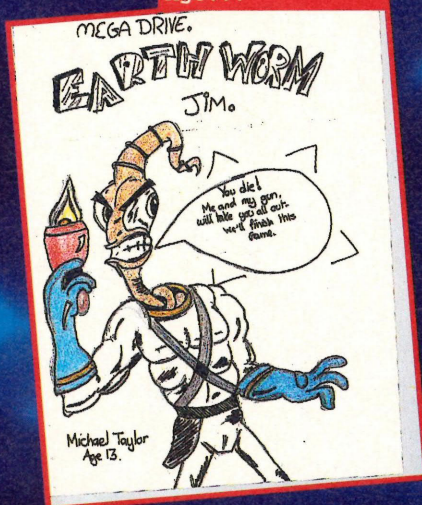 MEGA DRIVE.
EARTH WORM
JIM.
You die!
Me and my gun,
will take you all out.
we'll finish this
game.
Michael Taylor
Age 13.